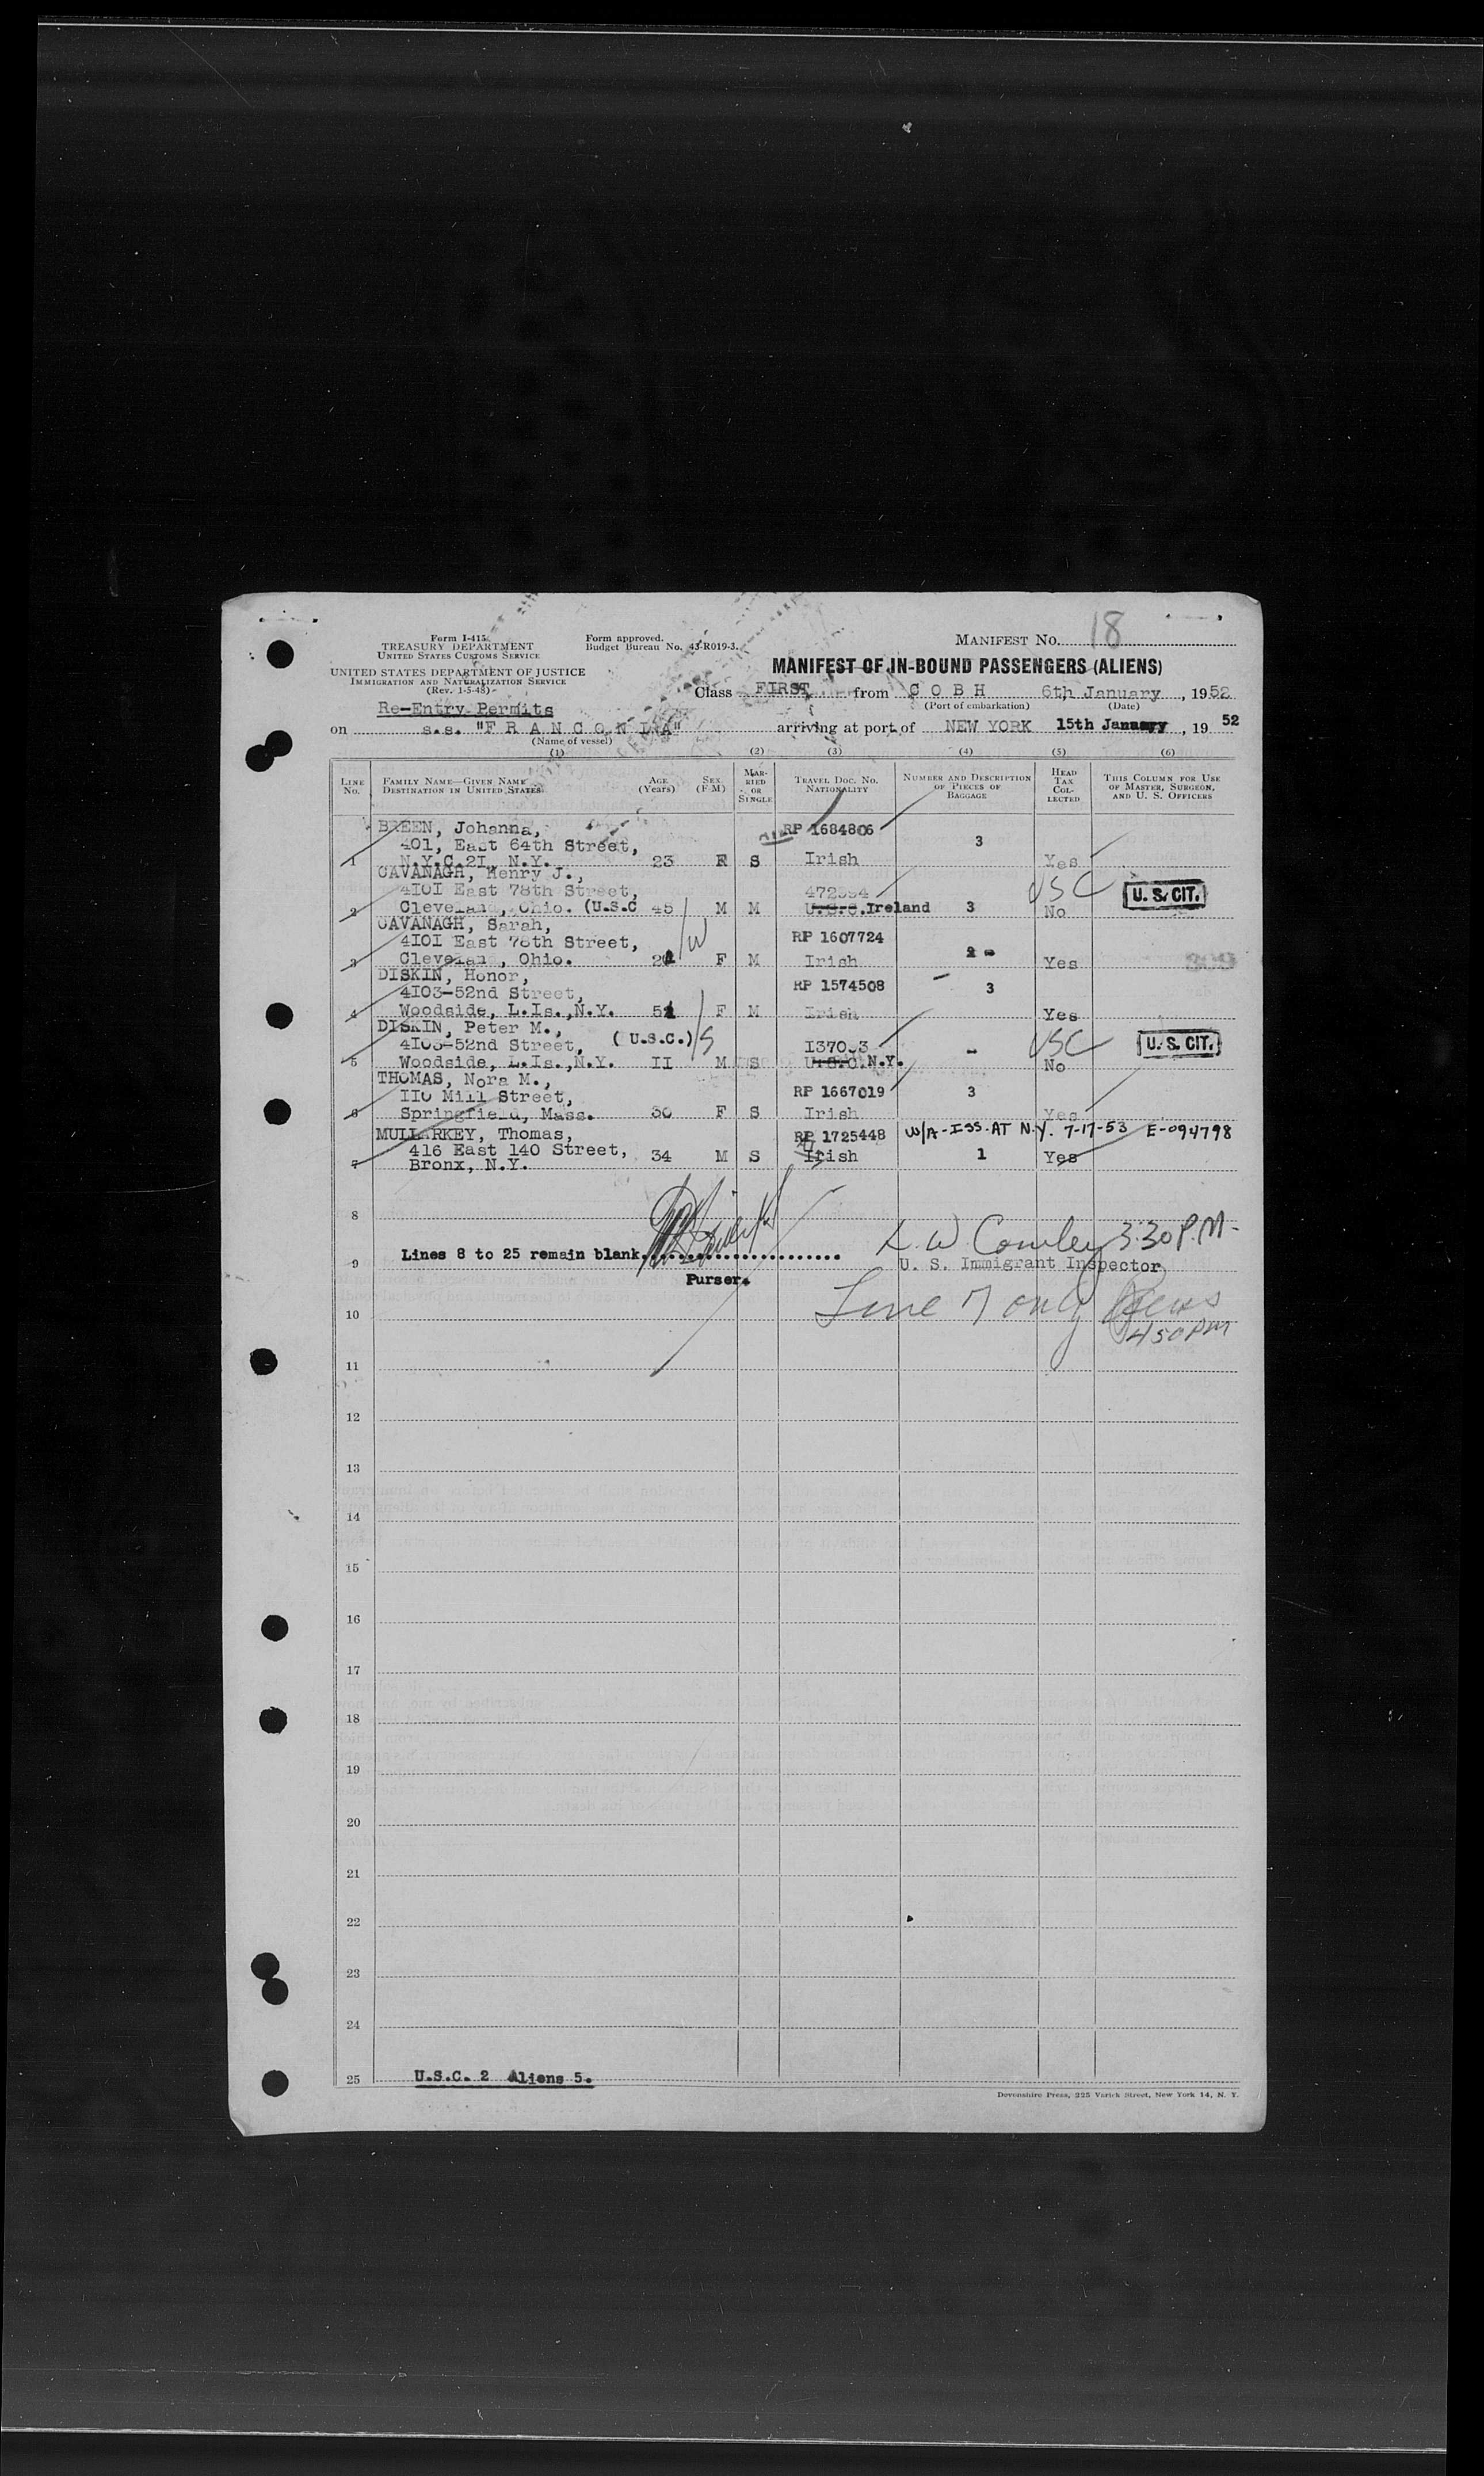 Form I-415
TREASURY DEPARTMENT
UNITED STATES CUSTOMS SERVICE
UNITED STATES DEPARTMENT OF JUSTICE
IMMIGRATION AND NATURALIZATION SERVICE
(Rev. 1-5-48)
Form approved.
Budget Bureau No. 43-R019-3.
MANIFEST NO. 18
MANIFEST OF IN-BOUND PASSENGERS (ALIENS)
Class FIRST from C O B H 6th January, 1952
(Port of embarkation) (Date)
Re-Entry Permits
on s.s. "F R A N C O N I A" arriving at port of NEW YORK 15th January, 19 52
(Name of vessel)
(1) (2) (3) (4) (5) (6)
LINE NO. FAMILY NAME—GIVEN NAME DESTINATION IN UNITED STATES AGE (Years) SEX (F M) MARRIED OR SINGLE TRAVEL DOC. NO. NATIONALITY NUMBER AND DESCRIPTION OF PIECES OF BAGGAGE HEAD TAX COLLECTED THIS COLUMN FOR USE OF MASTER, SURGEON, AND U. S. OFFICERS
BREEN, Johanna, RP 1684806
401, East 64th Street, 3
1 N.Y.C.2I, N.Y. 23 F S Irish Yes
CAVANAGH, Henry J.,
4IOI East 78th Street, USC U. S. CIT.
2 Cleveland, Ohio. (U.S.C 45 M M U.S.C. Ireland 3 No
CAVANAGH, Sarah, W
4IOI East 78th Street, RP 1607724
3 Cleveland, Ohio. F M Irish Yes
DISKIN, Honor, RP 1574508
4IO3-52nd Street, 3
4 Woodside, L.Is.,N.Y. F M Irish Yes
DISKIN, Peter M., (U.S.C.) S
4IO3-52nd Street, USC U. S. CIT.
5 Woodside, L.Is.,N.Y. II M S U.S.C. N.Y. - No
THOMAS, Nora M., RP 1667019 3
IIO Mill Street,
6 Springfield, Mass. 30 F S Irish Yes
MULLARKEY, Thomas, RP 1725448 W/A-ISS. AT N.Y. 7-17-53 E-094798
416 East 140 Street, 34 M S Irish 1 Yes
7 Bronx, N.Y.
8
L. W. Cowley 3:30 P.M.
9 Lines 8 to 25 remain blank.
U. S. Immigrant Inspector
Purser.
10 Line 7 only
450 PM
11
12
13
14
15
16
17
18
19
20
21
22
23
24
25 U.S.C. 2 Aliens 5.
Devonshire Press, 225 Varick Street, New York 14, N. Y.